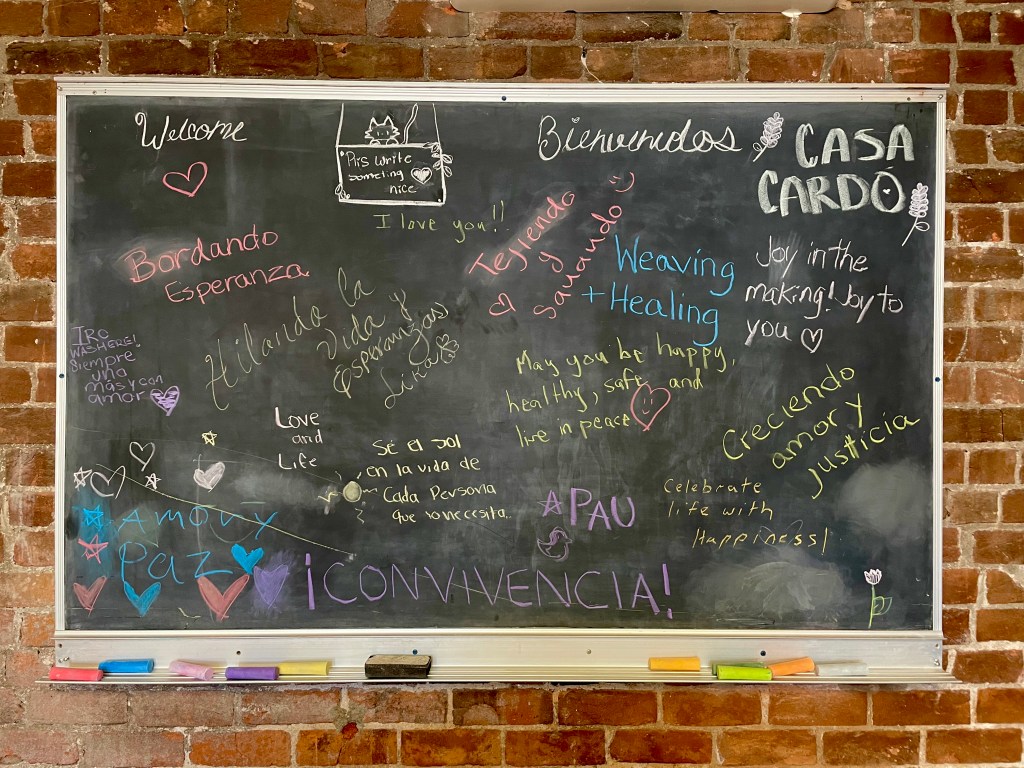 Welcome
Pls write
someting
nice
Bienvenidos
CASA
CARDO
I love you!!
Tejiendo
y
sauando
Bordando
Esperanza
Weaving
+ Healing
Joy in the
making! Joy to
you
Hilando la
vida y
Esperanzas
IRO
WAS HERE!
Siempre
una
más y con
amor
May you be happy,
healthy, safe, and
live in peace
Creciendo
amor y
justicia
Love
and
Life
Sé el sol
en la vida de
Cada Persona
que lo necesita.
PAU
Celebrate
life with
Happiness!
Amor y
Paz
¡CONVIVENCIA!